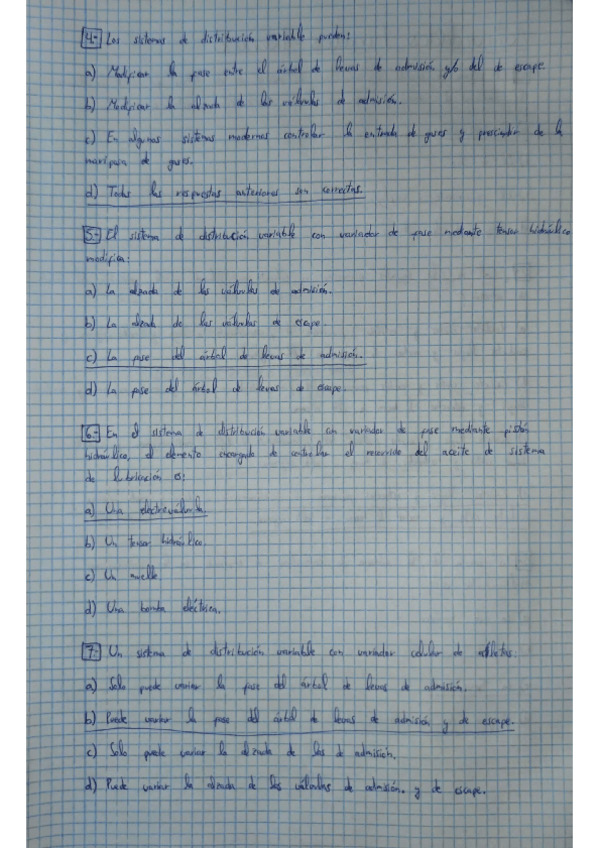 4.- Los sistemas de distribución variable pueden:
a) Modificar la fase entre el árbol de levas de admisión y/o del de escape.
b) Modificar la alzada de las válvulas de admisión.
c) En algunos sistemas modernos controlar la entrada de gases y prescindir de la
mariposa de gases.
d) Todas las respuestas anteriores son correctas.
5.- El sistema de distribución variable con variador de fase mediante tensor hidráulico
modifica:
a) La alzada de las válvulas de admisión.
b) La alzada de las válvulas de escape.
c) La fase del árbol de levas de admisión.
d) La fase del árbol de levas de escape.
6.- En el sistema de distribución variable con variador de fase mediante pistón
hidráulico, el elemento encargado de controlar el recorrido del aceite de sistema
de lubricación es:
a) Una electroválvula.
b) Un tensor hidráulico.
c) Un muelle
d) Una bomba eléctrica.
7.- Un sistema de distribución variable con variador celular de aletas:
a) Solo puede variar la fase del árbol de levas de admisión.
b) Puede variar la fase del árbol de levas de admisión y de escape.
c) Solo puede variar la alzada de las de admisión.
d) Puede variar la alzada de las válvulas de admisión. y de escape.